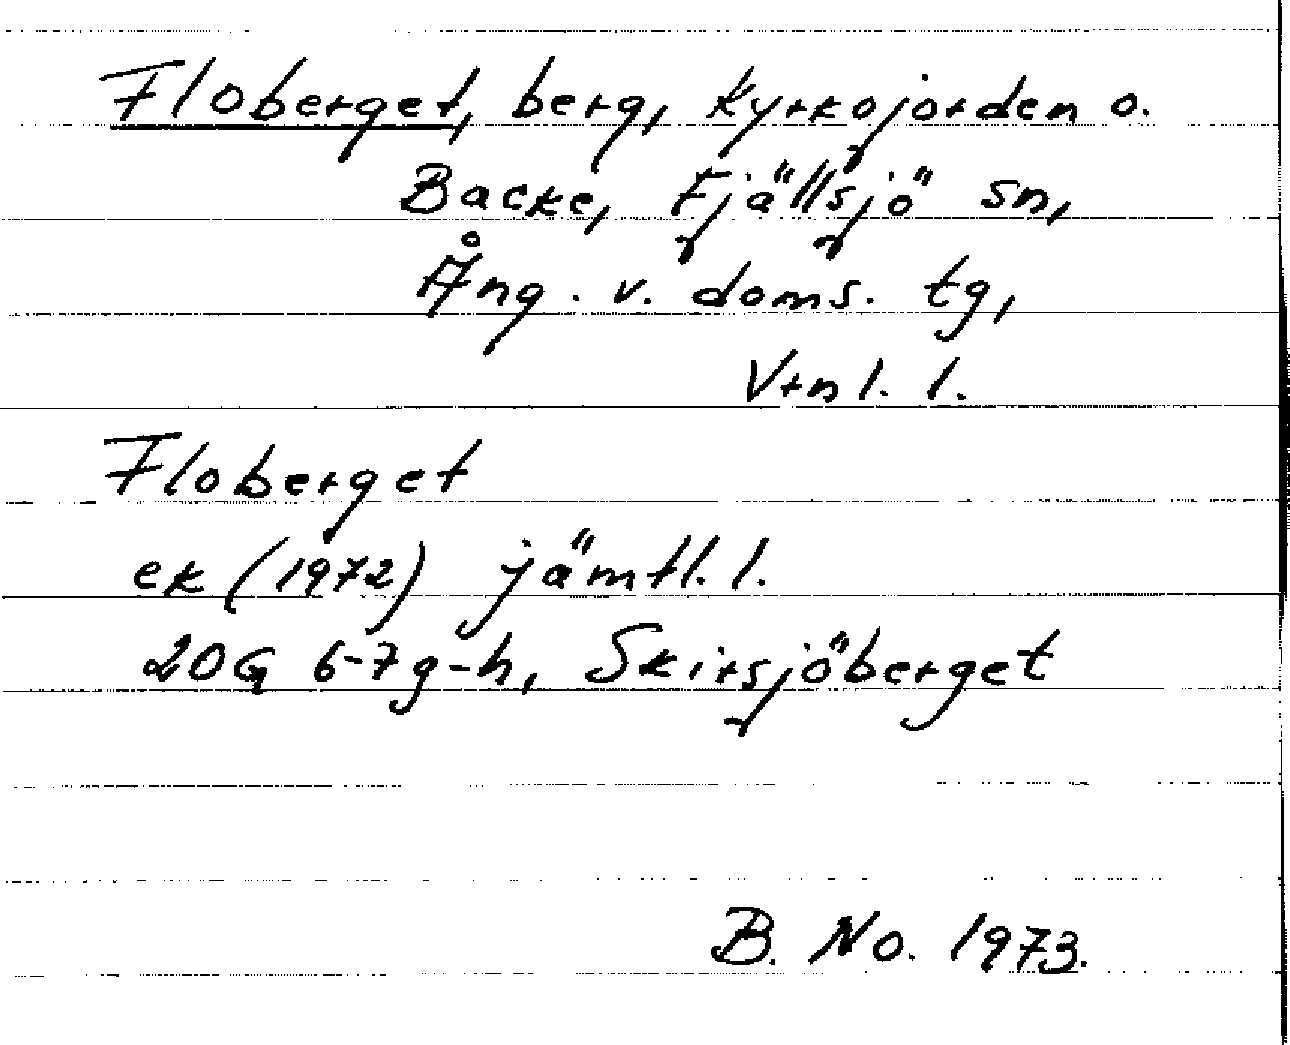 Floberget, berg, Kyrkojorden o.
Backe, Fjällsjö sn,
Ång. v. doms. tg,
Vtnl. l.
Floberget
ek (1972) jämtl. l.
20G 6-7g-h, Skirsjöberget
B. No. 1973.